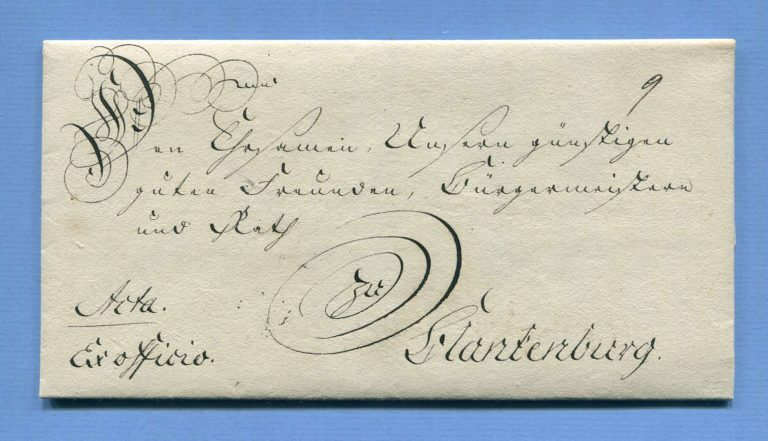 9
Den Ehrsamen, Unsern günstigen
guten Freunden, Bürgermeistern
und Rath
zu
Acta.
Ex officio.
Blankenburg.